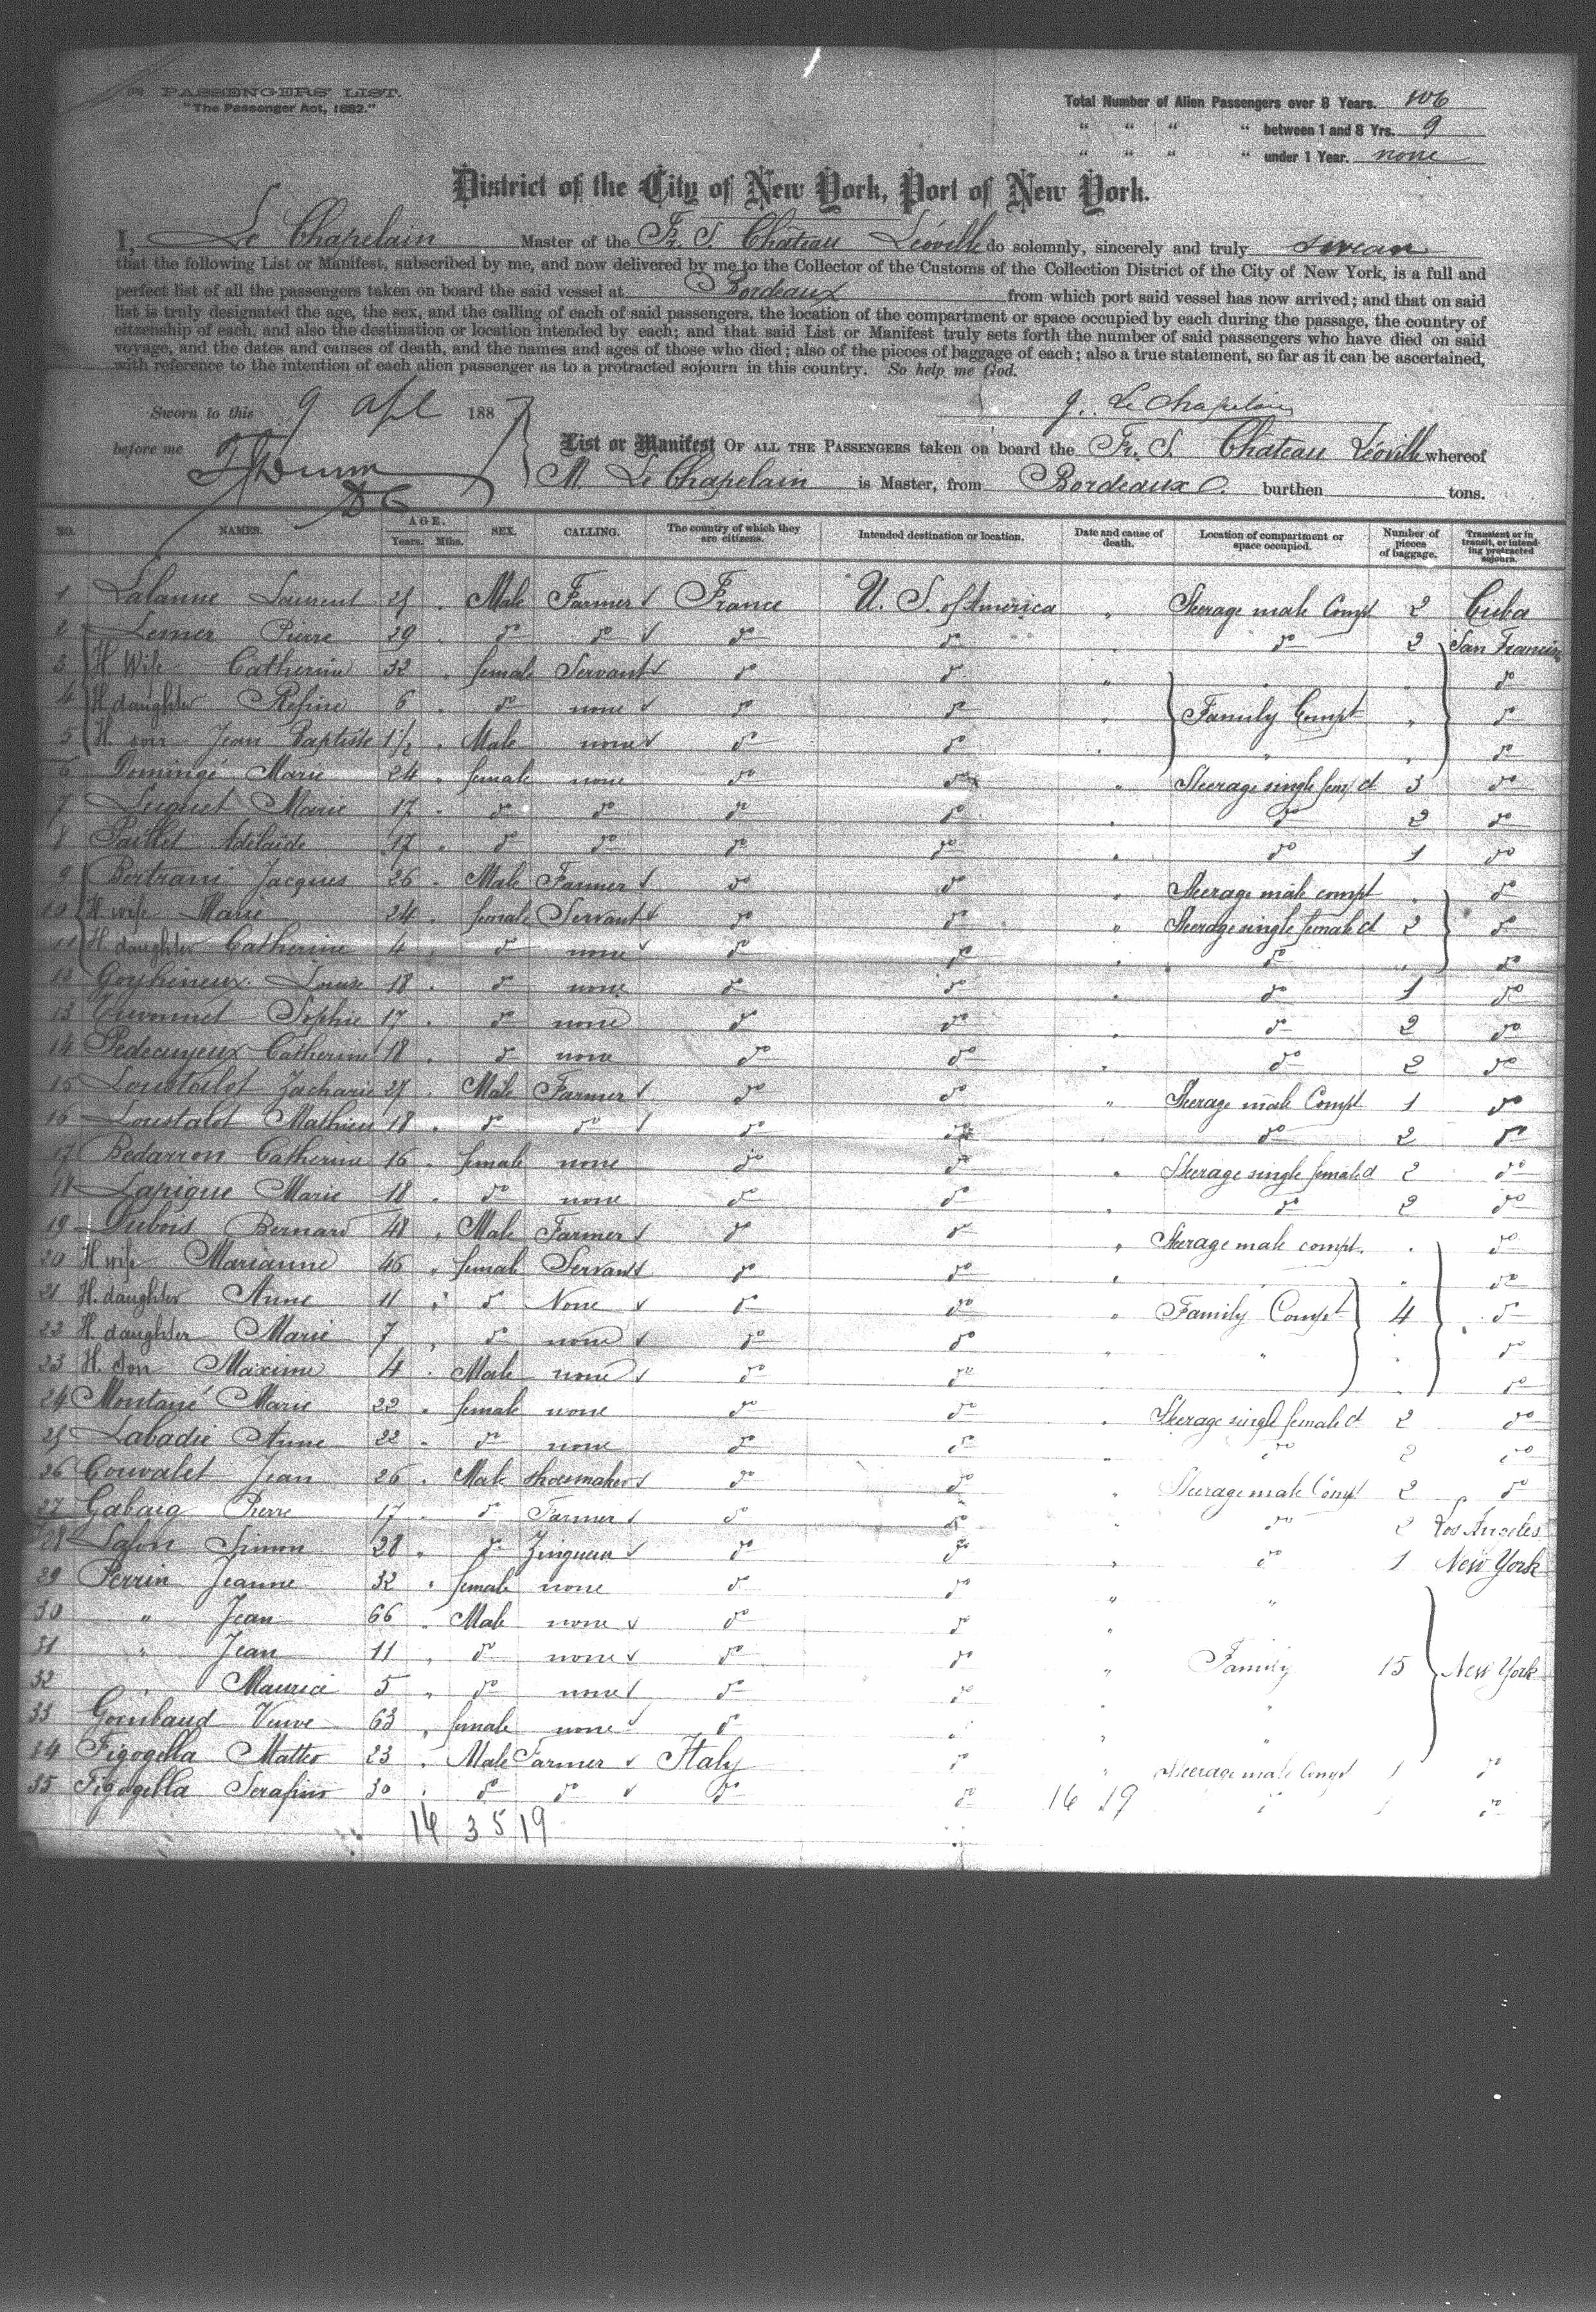 PASSENGERS' LIST.
"The Passenger Act, 1882."
Total Number of Alien Passengers over 8 Years. 106
" " " " between 1 and 8 Yrs. 9
" " " " under 1 Year. none
District of the City of New York, Port of New York.
I, Le Chapelain Master of the Fr. S. Château Léoville do solemnly, sincerely and truly swear
that the following List or Manifest, subscribed by me, and now delivered by me to the Collector of the Customs of the Collection District of the City of New York, is a full and
perfect list of all the passengers taken on board the said vessel at Bordeaux from which port said vessel has now arrived; and that on said
list is truly designated the age, the sex, and the calling of each of said passengers, the location of the compartment or space occupied by each during the passage, the country of
citizenship of each, and also the destination or location intended by each; and that said List or Manifest truly sets forth the number of said passengers who have died on said
voyage, and the dates and causes of death, and the names and ages of those who died; also of the pieces of baggage of each; also a true statement, so far as it can be ascertained,
with reference to the intention of each alien passenger as to a protracted sojourn in this country. So help me God.
Sworn to this 9 Apl 1887 J. Le Chapelain
before me
List or Manifest OF ALL THE PASSENGERS taken on board the Fr. S. Chateau Léoville whereof
M. Le Chapelain is Master, from Bordeaux burthen tons.
NO. NAMES. AGE. Years. Mths. SEX. CALLING. The country of which they are citizens. Intended destination or location. Date and cause of death. Location of compartment or space occupied. Number of pieces of baggage. Transient or in transit, or intending protracted sojourn.
1 Lalanne Laurent 25 Male Farmer France U. S. of America " Steerage male Compt 2 Cuba
2 Lemer Pierre 29 do do do do do 2 San Francisco
3 H. Wife Catherine 32 female Servant do do " do
4 H. daughter Rosine 6 do none do do Family Compt do
5 H. son Jean Baptiste 1½ Male none do do do
6 Domingé Marie 24 female none do do Steerage single fem ct 3 do
7 Luquet Marie 17 do do do do do 2 do
8 Paillet Adélaïde 17 do do do do do 1 do
9 Bertrani Jacques 26 Male Farmer do do Steerage male compt do
10 H. wife Marie 24 female Servant do do " Steerage single female ct 2 do
11 H. daughter Catherine 4 do none do do do do
12 Louise 18 do none do do do 1 do
13 Sophie 17 do none do do do 2 do
14 Catherine 18 do none do do do 2 do
15 Loustalot Zacharie 27 Male Farmer do do " Steerage male Compt 1 do
16 Loustalot Mathieu 18 do do do do do 2 do
17 Bedarron Catherine 16 female none do do Steerage single female ct 2 do
18 Lapigue Marie 18 do none do do do 2 do
19 Dubois Bernard 48 Male Farmer do do Steerage male compt. do
20 H. wife Marianne 46 female Servant do do do
21 H. daughter Anne 11 do None do do " Family Compt 4 do
22 H. daughter Marie 7 do none do do " " do
23 H. son Maxime 4 Male none do do do
24 Montané Marie 22 female none do do Steerage single female ct 2 do
25 Labadie Anne 22 do none do do do 2 do
26 Couvalet Jean 26 Male shoemaker do do Steerage male Compt 2 do
27 Gabaig Pierre 17 do Farmer do do do 2 Los Angeles
28 Lafon Simon 28 do Zingueur do do do 1 New York
29 Perrin Jeanne 32 female none do do " "
30 " Jean 66 Male none do do
31 " Jean 11 do none do do " Family 15 New York
32 " Maurice 5 do none do do "
33 Gombaud Veuve 63 female none do "
34 Figogella Matteo 23 Male Farmer Italy do Steerage male Compt 1 do
35 Figogella Serafino 30 do do do do 16 19 do 1 do
14 35 19